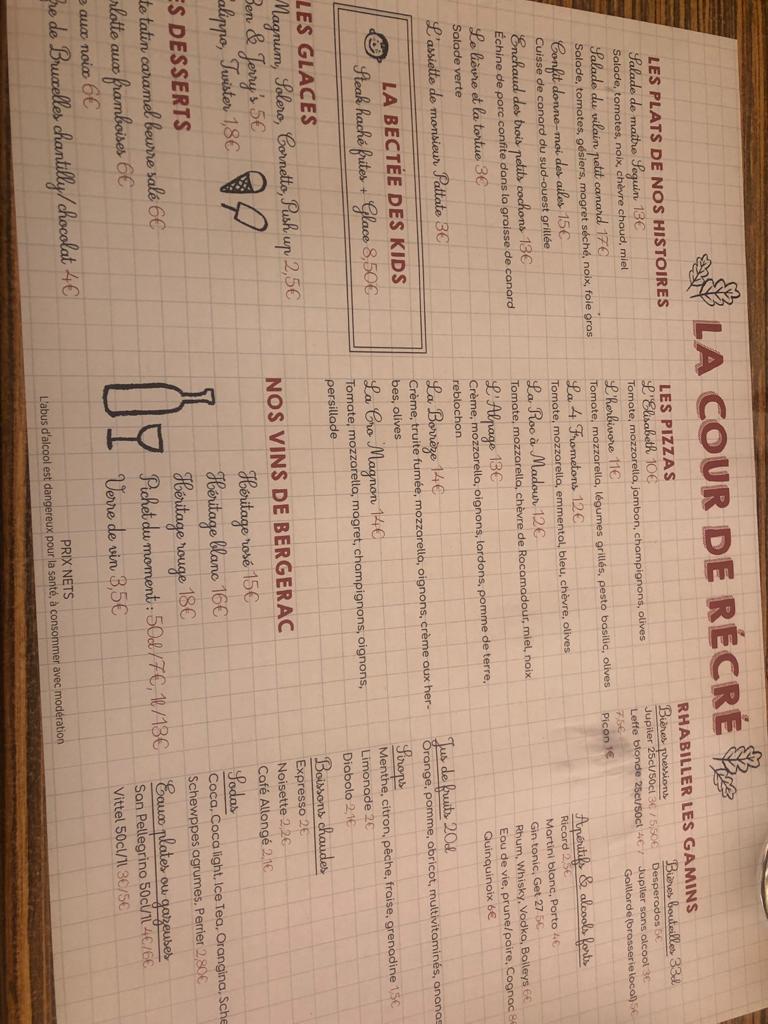 LA COUR DE RÉCRÉ
LES PLATS DE NOS HISTOIRES
Salade de maître Seguin 13€
Salade, tomates, noix, chèvre chaud, miel
Salade du vilain petit canard 17€
Salade, tomates, gésiers, magret séché, noix, foie gras
Confit donne-moi des ailes 15€
Cuisse de canard du sud-ouest grillée
Enchaud des trois petits cochons 13€
Échine de porc confite dans la graisse de canard
Le lièvre et la tortue 3€
Salade verte
L'assiette de monsieur Patate 3€
LA BECTÉE DES KIDS
Steak haché frites + Glace 8,50€
LES GLACES
Magnum, Solero, Cornetto, Push up 2,5€
Ben & Jerry's 5€
alippo, Twister 1,8€
ES DESSERTS
te tatin caramel beurre salé 6€
rlotte aux framboises 6€
e aux noix 6€
re de Bruxelles chantilly/chocolat 4€
LES PIZZAS
L'Elisabeth 10€
Tomate, mozzarella, jambon, champignons, olives
L'herbivore 11€
Tomate, mozzarella, légumes grillés, pesto basilic, olives
La 4 Frometons 12€
Tomate, mozzarella, emmental, bleu, chèvre, olives
La Roc à Madour 12€
Tomate, mozzarella, chèvre de Rocamadour, miel, noix
L'Alpage 13€
Crème, mozzarella, oignons, lardons, pomme de terre,
reblochon
La Borrèze 14€
Crème, truite fumée, mozzarella, oignons, crème aux her-
bes, olives
La Cro Magnon 14€
Tomate, mozzarella, magret, champignons, oignons,
persillade
NOS VINS DE BERGERAC
Héritage rosé 15€
Héritage blanc 16€
Héritage rouge 18€
Pichet du moment : 50cl/7€, 1l/13€
Verre de vin 3,5€
PRIX NETS
L'abus d'alcool est dangereux pour la santé, à consommer avec modération
RHABILLER LES GAMINS
Bières pressions
Jupiler 25cl/50cl 3€ / 5,50€
Leffe blonde 25cl/50cl 4€ /
7,5€
Picon 1€
Bières bouteilles 33cl
Desperados 5€
Jupiler sans alcool 3€
Gaillarde (brasserie local) 5€
Apéritifs & alcools forts
Ricard 2,5€
Martini blanc, Porto 4€
Gin tonic, Get 27 5€
Rhum, Whisky, Vodka, Baileys 6€
Eau de vie, prune/poire, Cognac 8€
Quinquinoix 6€
Jus de fruits 20cl
Orange, pomme, abricot, multivitaminés, ananas
Sirops
Menthe, citron, pêche, fraise, grenadine 1,5€
Limonade 2€
Diabolo 2,1€
Boissons chaudes
Expresso 2€
Noisette 2,2€
Café Allongé 2,1€
Sodas
Coca, Coca light, Ice Tea, Orangina, Schw
Schewppes agrumes, Perrier 2,80€
Eaux plates ou gazeuses
San Pellegrino 50cl/1l 4€/6€
Vittel 50cl/1l 3€/5€